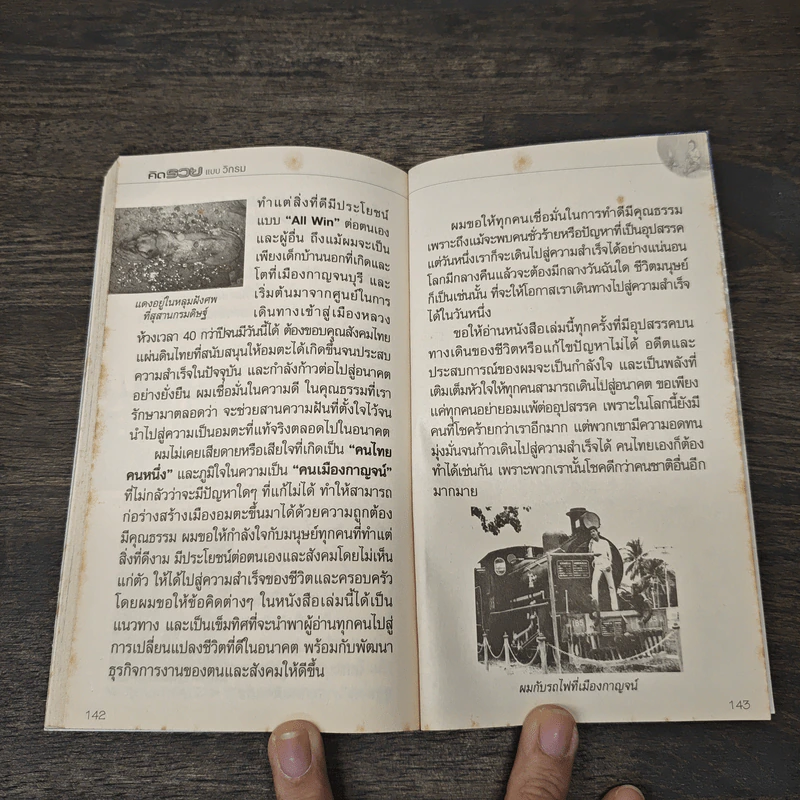 คิดรวยแบบ วิกรม
ทำแต่สิ่งที่ดีมีประโยชน์
แบบ “All Win” ต่อตนเอง
และผู้อื่น ถึงแม้ผมจะเป็น
เพียงเด็กบ้านนอกที่เกิดและ
โตที่เมืองกาญจนบุรี และ
เริ่มต้นมาจากศูนย์ในการ
เดินทางเข้าสู่เมืองหลวง
แดงอยู่ในหลุมฝังศพ
ที่สุสานกรมดิษฐ์
ห้วงเวลา 40 กว่าปีจนมีวันนี้ได้ ต้องขอบคุณสังคมไทย
แผ่นดินไทยที่สนับสนุนให้อมตะได้เกิดขึ้นจนประสบ
ความสำเร็จในปัจจุบัน และกำลังก้าวต่อไปสู่อนาคต
อย่างยั่งยืน ผมเชื่อมั่นในความดี ในคุณธรรมที่เรา
รักษามาตลอดว่า จะช่วยสานความฝันที่ตั้งใจไว้จน
นำไปสู่ความเป็นอมตะที่แท้จริงตลอดไปในอนาคต
ผมไม่เคยเสียดายหรือเสียใจที่เกิดเป็น “คนไทย
คนหนึ่ง” และภูมิใจในความเป็น “คนเมืองกาญจน์”
ที่ไม่กลัวว่าจะมีปัญหาใดๆ ที่แก้ไม่ได้ ทำให้สามารถ
ก่อร่างสร้างเมืองอมตะขึ้นมาได้ด้วยความถูกต้อง
มีคุณธรรม ผมขอให้กำลังใจกับมนุษย์ทุกคนที่ทำแต่
สิ่งที่ดีงาม มีประโยชน์ต่อตนเองและสังคมโดยไม่เห็น
แก่ตัว ให้ได้ไปสู่ความสำเร็จของชีวิตและครอบครัว
โดยผมขอให้ข้อคิดต่างๆ ในหนังสือเล่มนี้ได้เป็น
แนวทาง และเป็นเข็มทิศที่จะนำพาผู้อ่านทุกคนไปสู่
การเปลี่ยนแปลงชีวิตที่ดีในอนาคต พร้อมกับพัฒนา
ธุรกิจการงานของตนและสังคมให้ดีขึ้น
142
ผมขอให้ทุกคนเชื่อมั่นในการทำดีมีคุณธรรม
เพราะถึงแม้จะพบคนชั่วร้ายหรือปัญหาที่เป็นอุปสรรค
แต่วันหนึ่งเราก็จะเดินไปสู่ความสำเร็จได้อย่างแน่นอน
โลกมีกลางคืนแล้วจะต้องมีกลางวันฉันใด ชีวิตมนุษย์
ก็เป็นเช่นนั้น ที่จะให้โอกาสเราเดินทางไปสู่ความสำเร็จ
ได้ในวันหนึ่ง
ขอให้อ่านหนังสือเล่มนี้ทุกครั้งที่มีอุปสรรคบน
ทางเดินของชีวิตหรือแก้ไขปัญหาไม่ได้ อดีตและ
ประสบการณ์ของผมจะเป็นกำลังใจ และเป็นพลังที่
เติมเต็มหัวใจให้ทุกคนสามารถเดินไปสู่อนาคต ขอเพียง
แค่ทุกคนอย่ายอมแพ้ต่ออุปสรรค เพราะในโลกนี้ยังมี
คนที่โชคร้ายกว่าเราอีกมาก แต่พวกเขามีความอดทน
มุ่งมั่นจนก้าวเดินไปสู่ความสำเร็จได้ คนไทยเองก็ต้อง
ทำได้เช่นกัน เพราะพวกเรานั้นโชคดีกว่าคนชาติอื่นอีก
มากมาย
ผมกับรถไฟที่เมืองกาญจน์
143